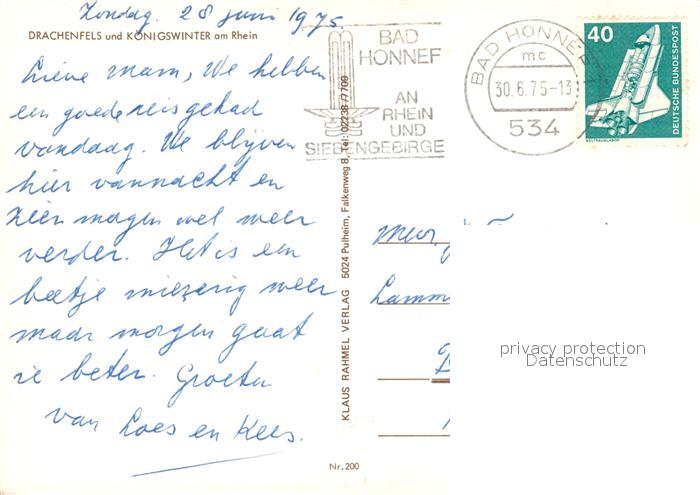 Zondag. 28 juni 1975.
DRACHENFELS und KÖNIGSWINTER am Rhein
Lieve mam, We hebben
een goede reis gehad
vandaag. We blijven
hier vannacht en
zien morgen wel weer
verder. Het is een
beetje miezerig weer
maar morgen gaat
ie beter. Groeten
van Loes en Kees.
BAD
HONNEF
AN
RHEIN
UND
SIEBENGEBIRGE
BAD HONNEF
mc
30.6.75-13
534
40
DEUTSCHE BUNDESPOST
WELTRAUMLABOR
KLAUS RAHMEL VERLAG 5024 Pulheim, Falkenweg 8, Tel. 02238/7709
Mevr.
Lamm
privacy protection
Datenschutz
Nr. 200